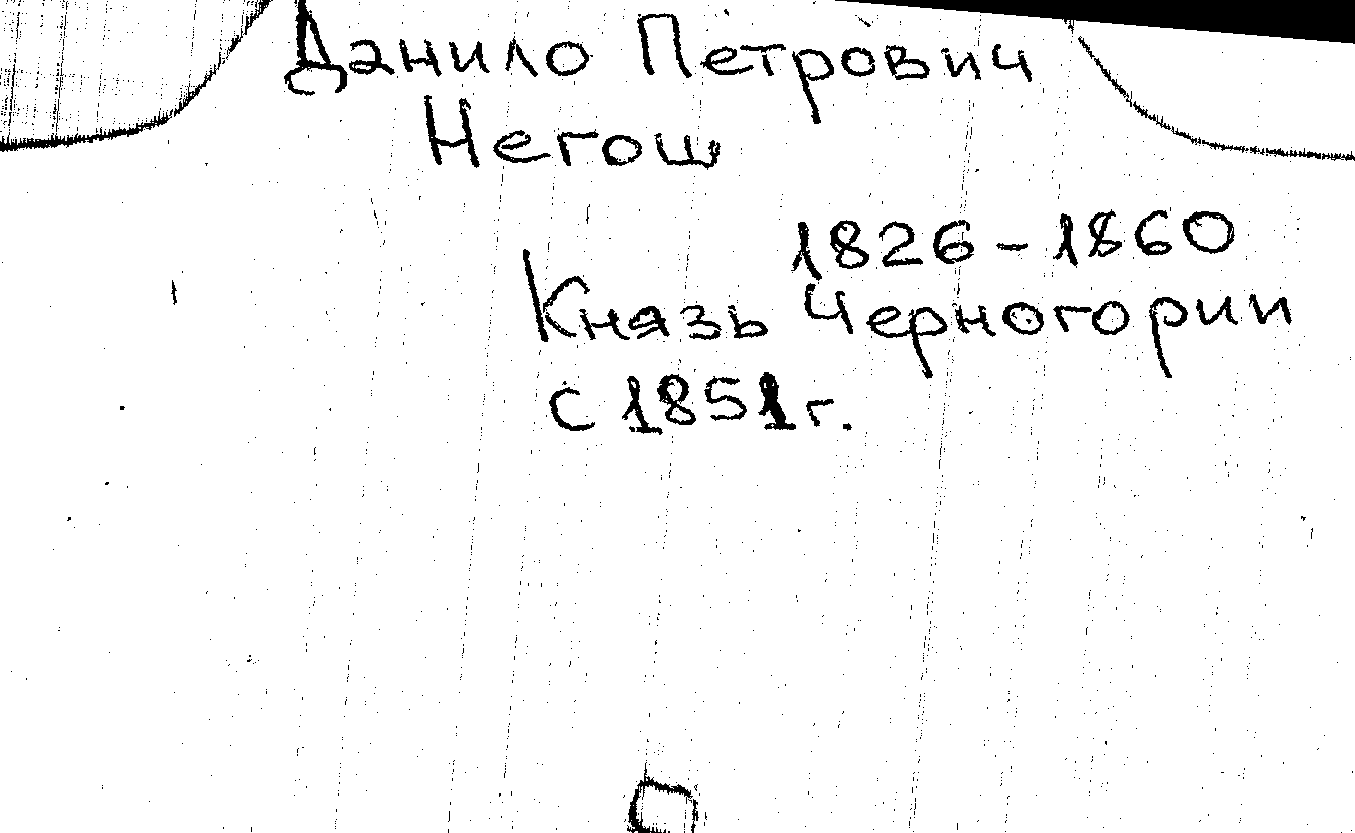 Данило Петрович
Негош
1826-1860
Князь Черногории
с 1851 г.